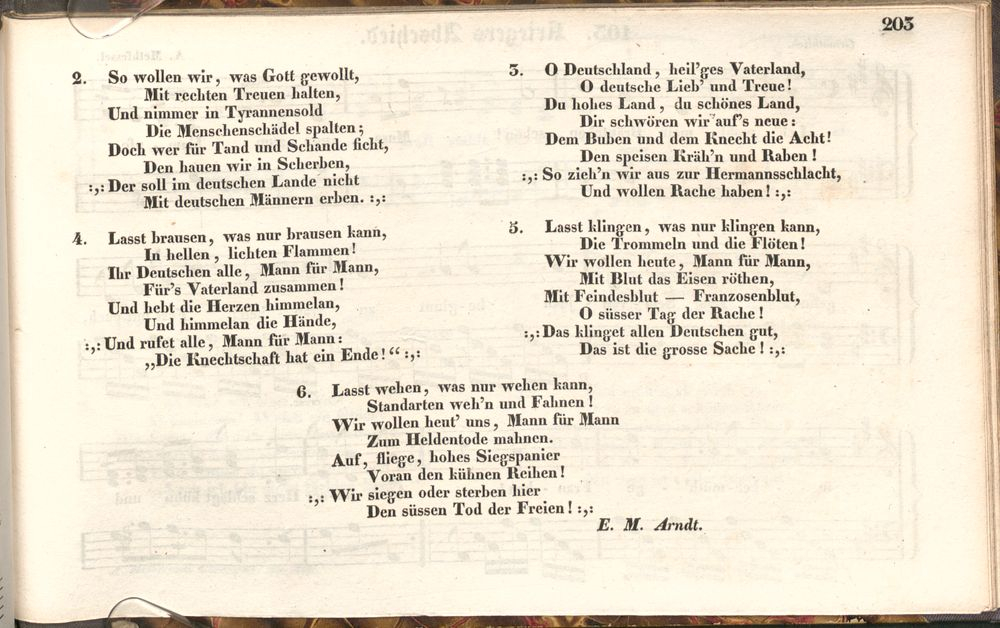 203
2. So wollen wir, was Gott gewollt,
Mit rechten Treuen halten,
Und nimmer in Tyrannensold
Die Menschenschädel spalten;
Doch wer für Tand und Schande ficht,
Den hauen wir in Scherben,
:,: Der soll im deutschen Lande nicht
Mit deutschen Männern erben. :,:
3. O Deutschland, heil'ges Vaterland,
O deutsche Lieb' und Treue!
Du hohes Land, du schönes Land,
Dir schwören wir auf's neue:
Dem Buben und dem Knecht die Acht!
Den speisen Kräh'n und Raben!
:,: So zieh'n wir aus zur Hermannsschlacht,
Und wollen Rache haben! :,:
4. Lasst brausen, was nur brausen kann,
In hellen, lichten Flammen!
Ihr Deutschen alle, Mann für Mann,
Für's Vaterland zusammen!
Und hebt die Herzen himmelan,
Und himmelan die Hände,
:,: Und rufet alle, Mann für Mann:
„Die Knechtschaft hat ein Ende!“ :,:
5. Lasst klingen, was nur klingen kann,
Die Trommeln und die Flöten!
Wir wollen heute, Mann für Mann,
Mit Blut das Eisen röthen,
Mit Feindesblut — Franzosenblut,
O süsser Tag der Rache!
:,: Das klinget allen Deutschen gut,
Das ist die grosse Sache! :,:
6. Lasst wehen, was nur wehen kann,
Standarten weh'n und Fahnen!
Wir wollen heut' uns, Mann für Mann
Zum Heldentode mahnen.
Auf, fliege, hohes Siegspanier
Voran den kühnen Reihen!
:,: Wir siegen oder sterben hier
Den süssen Tod der Freien! :,:
E. M. Arndt.